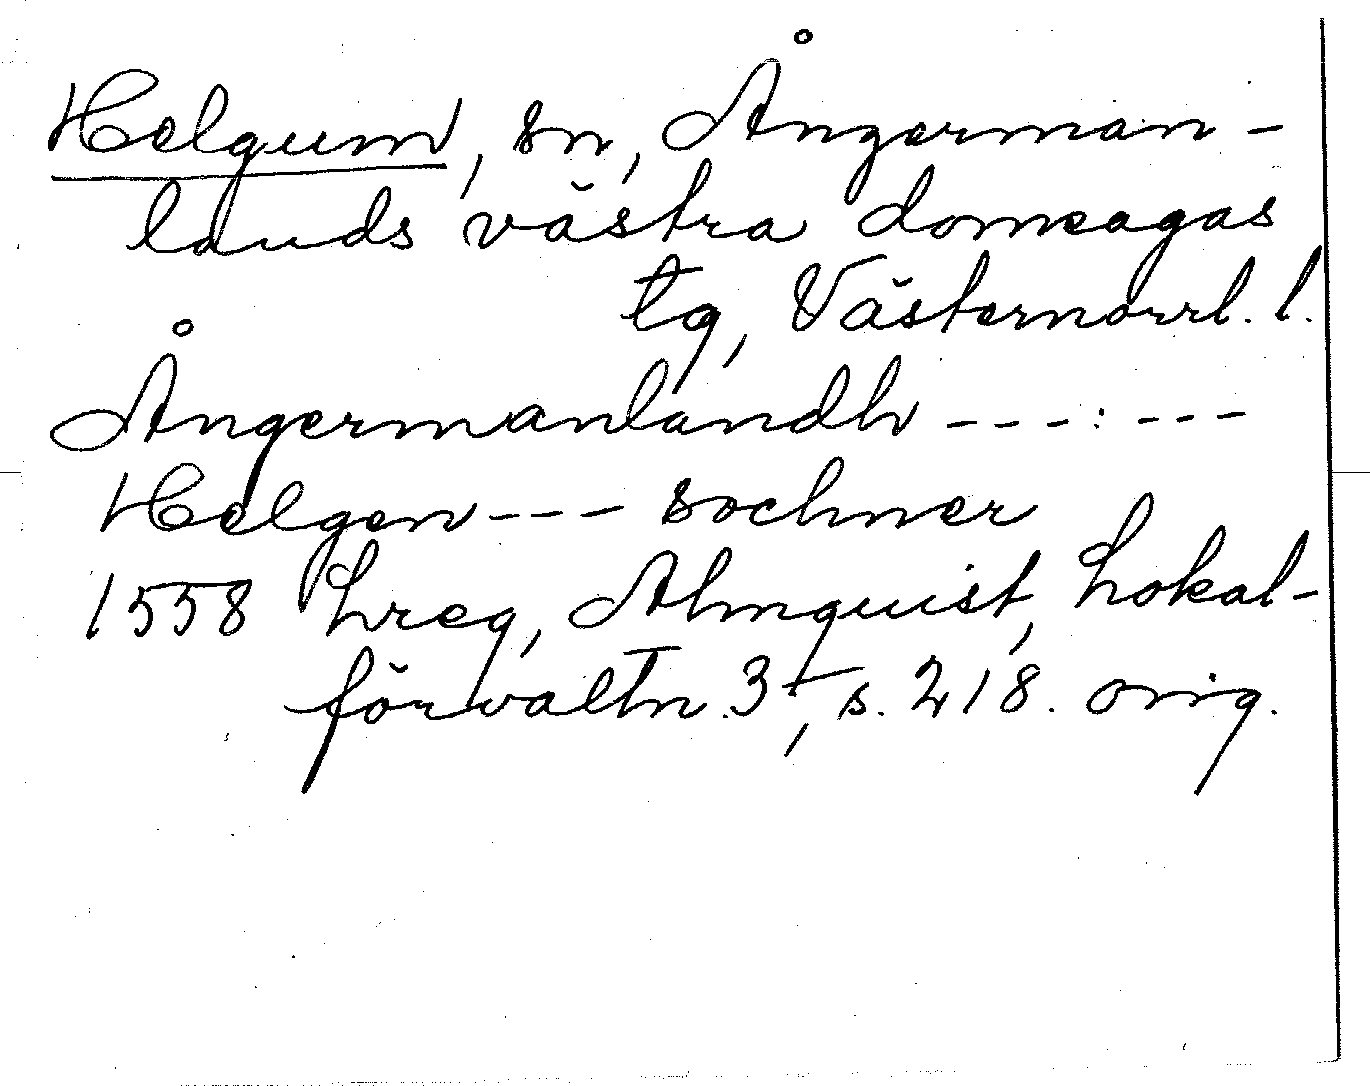 Helgum, sn, Ångerman-
lands västra domsagas
tg, Västernorrl. l.
Ångermanlandh ---:---
Helgen --- sochner
1558 Lreg, Almquist, Lokal-
förvaltn. 3, s. 218. orig.